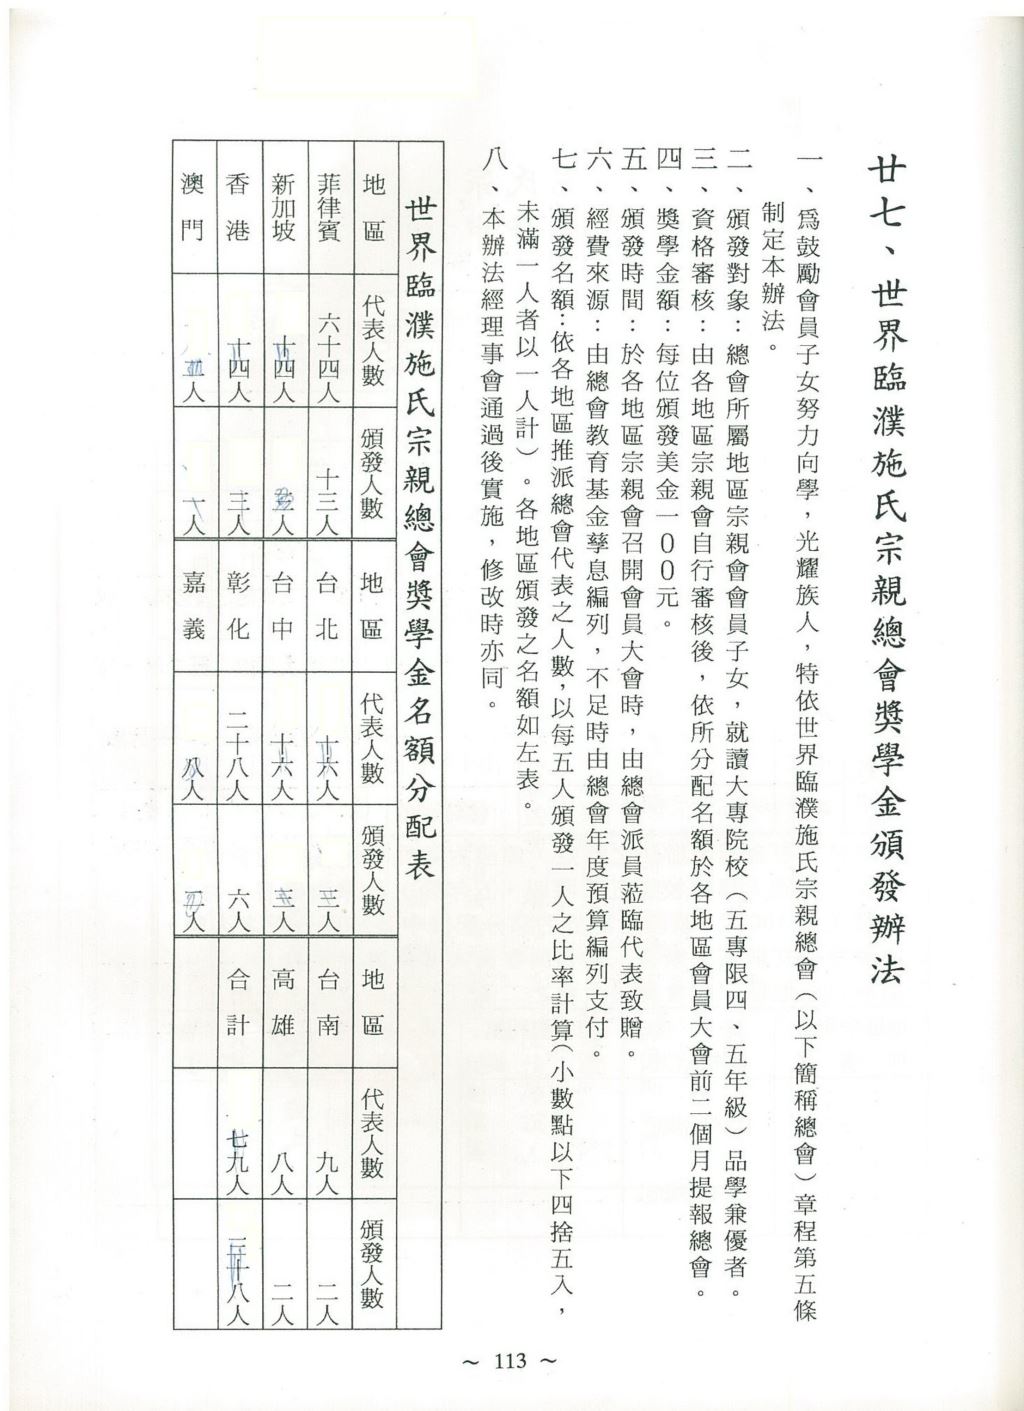 廿七、世界臨濮施氏宗親總會獎學金頒發辦法
一、為鼓勵會員子女努力向學，光耀族人，特依世界臨濮施氏宗親總會（以下簡稱總會）章程第五條
制定本辦法。
二、頒發對象：總會所屬地區宗親會會員子女，就讀大專院校（五專限四、五年級）品學兼優者。
三、資格審核：由各地區宗親會自行審核後，依所分配名額於各地區會員大會前二個月提報總會。
四、獎學金額：每位頒發美金一００元。
五、頒發時間：於各地區宗親會召開會員大會時，由總會派員蒞臨代表致贈。
六、經費來源：由總會教育基金孳息編列，不足時由總會年度預算編列支付。
七、頒發名額：依各地區推派總會代表之人數，以每五人頒發一人之比率計算（小數點以下四捨五入，
未滿一人者以一人計）。各地區頒發之名額如左表。
八、本辦法經理事會通過後實施，修改時亦同。
世界臨濮施氏宗親總會獎學金名額分配表
地區 代表人數 頒發人數 地區 代表人數 頒發人數 地區 代表人數 頒發人數
菲律賓 六十四人 十三人 台北 十六人 三人 台南 九人 二人
新加坡 十四人 人 台中 十六人 三人 高雄 八人 二人
香港 十四人 三人 彰化 二十八人 六人 合計 九人 十八人
澳門 人 一人 嘉義 八人 人
~ 113 ~